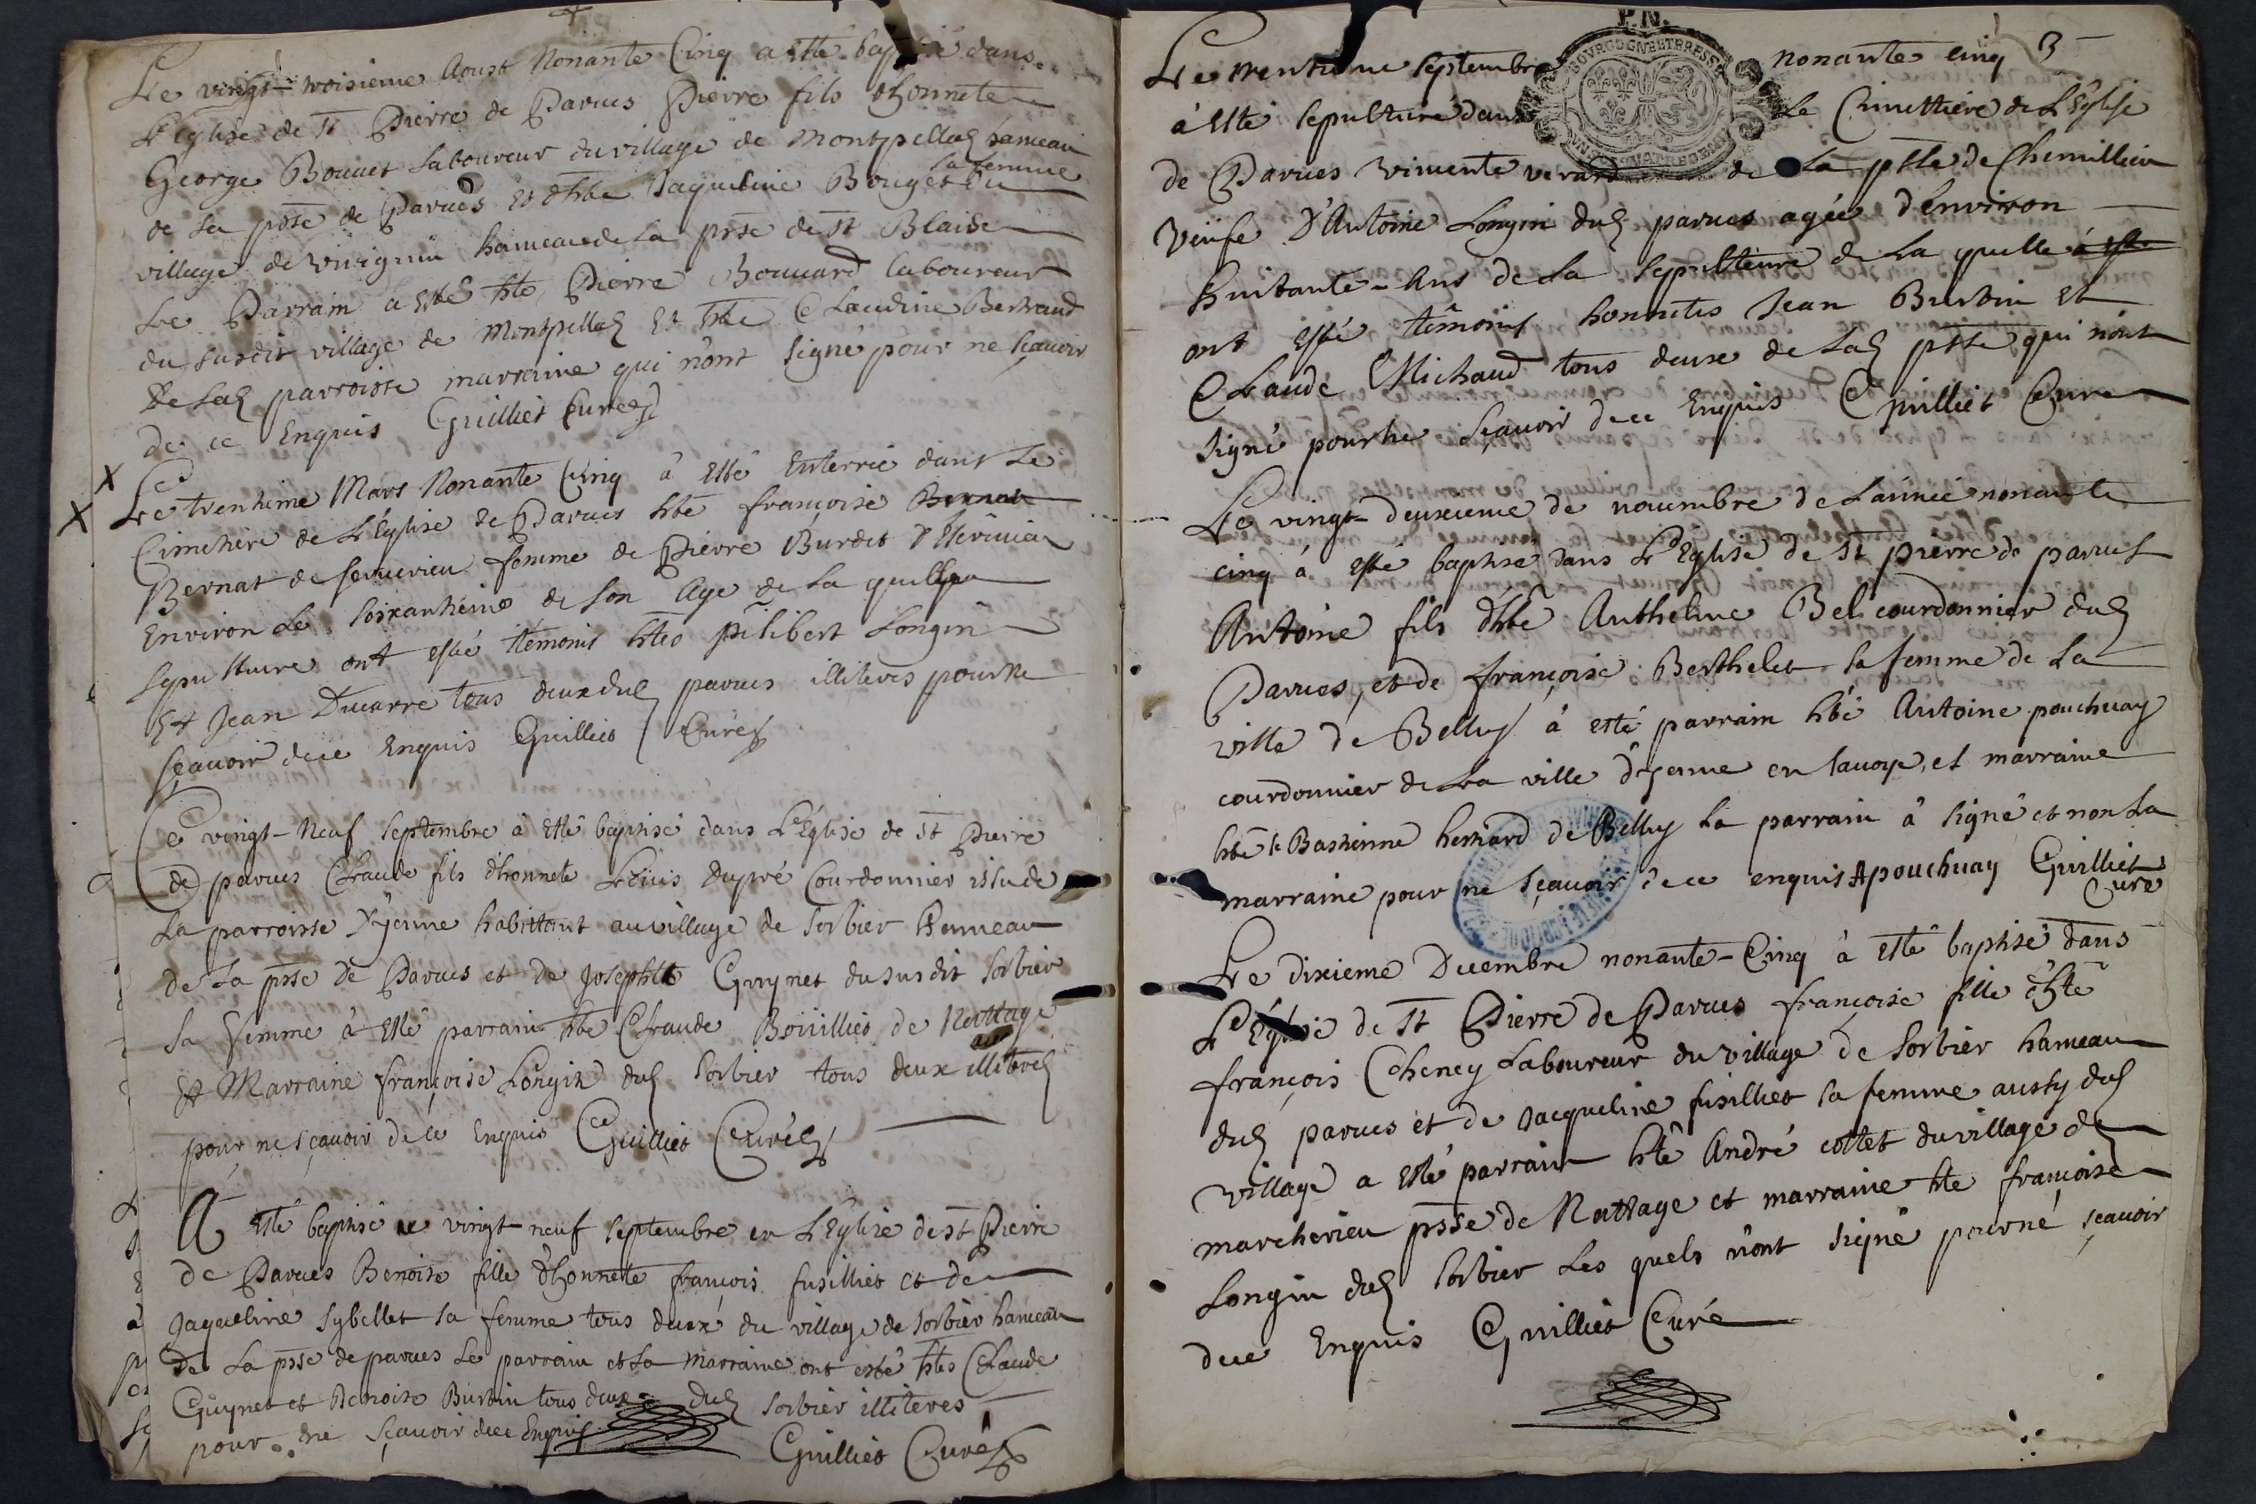 Le vingt-troisieme Aoust Nonante Cinq a esté baptisé dans
L'Eglise de St Pierre de Parues Pierre fils d'honnete
George Bouuet Laboureur du village de Montpellaz hameau
de la psse de Parues et d'hte Jaqueline Bouget sa femme du
village de Virignin hameau de la psse de St Blaise
Le Parrain a esté hte Pierre Bouuard laboureur
du susdit village de Montpellaz Et hte Claudine Bertrand
de lad parroisse marraine qui n'ont signé pour ne sçauoir
de ce Enquis Guilliet Curé
X Le trentieme Mars Nonante Cinq à esté Enterrée dans Le
X Cimetiere de L'Eglise de Parues hte françoise
Bernat de seruerieu femme de Pierre Burdet
Enuiron Le soixantieme de son Age de la quelle
sepulture ont esté témoins htes pilibert Longin
Et Jean Ducarre tous deux dud parues illiteres pour ne
sçauoir dece Enquis Guilliet Curé
Ce vingt-Neuf septembre à esté baptisé dans L'Eglise de St Pierre
de parues Claude fils d'honnete Loüis dupré Courdonnier issu de
La parroisse d'yenne habittant au village de sorbier hameau
de La psse de Parues et de Josephte Guynet du susdit sorbier
sa femme à esté parrain hte Claude Bouillier de Nattage
Et Marraine françoise Longin dud sorbier tous deux illiteres
pour ne sçauoir de ce Enquis Guilliet Curé
A esté baptisé ce vingt neuf septembre en L'Eglise de St Pierre
de Parues Benoise fille d'honnete françois fusilliet et de
Jaqueline Sybellet sa femme tous deux du village de sorbier hameau
de La psse de parues Le parrain et La Marraine ont esté htes Claude
Guynet et Benoise Burtin tous deux dud sorbier illiteres
pour ne sçauoir dece Enquis
Guilliet Curé
P.N.
3
Le trentieme septembre nonante cinq
à esté sepulturé dans Le Cimettiere de L'Eglise
de Parues Vincente de La psse de Chemillieu
veufe D'Antoine Longin dud parues agée d'enuiron
huitante-Ans de La sepulteure de La quelle
ont esté témoins honnetes Jean Burtin Et
Claude Michaud tous deux de Lad psse qui n'ont
signé pour ne sçauoir dece Enquis Guilliet Curé
Le vingt-deuxieme de nouembre de L'année nonante
cinq à esté baptisé dans L'Eglise de St pierre de parues
Antoine fils d'hte Anthelme Bel courdonnier dud
Parues, et de françoise Berthelet sa femme de La
ville de Belley à esté parrain hte Antoine pouchuay
courdonnier de La ville d'yenne en sauoye, et marraine
hte Bastienne hertiard de Belley La parrain à signé et non La
marraine pour ne sçauoir de ce enquis Apouchuay Guilliet
Curé
Le dixieme Decembre nonante-Cinq à esté baptisé dans
L'Eglise de St Pierre de Parues françoise fille d'hte
françois Cheney Laboureur du village de sorbier hameau
dud parues et de Jacqueline fusilliet sa femme aussy dud
village a esté parrain hte André cottet du village de
marcherieu psse de Nattage et marraine hte françoise
Longin dud sorbier Les quels n'ont signé pour né sçauoir
dece Enquis Guilliet Curé